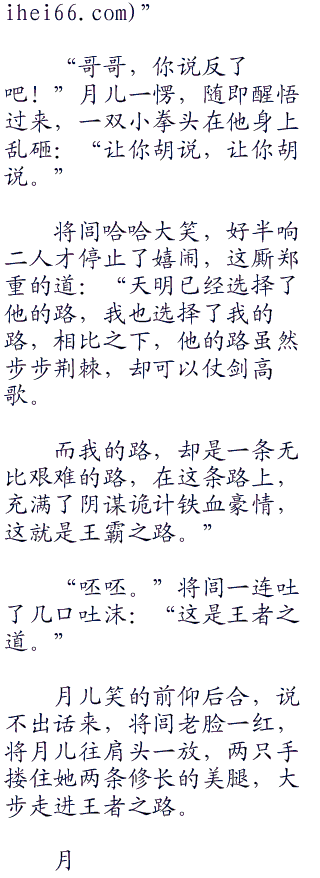 ihei66.com)”
“哥哥，你说反了
吧！”月儿一愣，随即醒悟
过来，一双小拳头在他身上
乱砸：“让你胡说，让你胡
说。”
将闾哈哈大笑，好半响
二人才停止了嬉闹，这厮郑
重的道：“天明已经选择了
他的路，我也选择了我的
路，相比之下，他的路虽然
步步荆棘，却可以仗剑高
歌。
而我的路，却是一条无
比艰难的路，在这条路上，
充满了阴谋诡计铁血豪情，
这就是王霸之路。”
“呸呸。”将闾一连吐
了几口吐沫：“这是王者之
道。”
月儿笑的前仰后合，说
不出话来，将闾老脸一红，
将月儿往肩头一放，两只手
搂住她两条修长的美腿，大
步走进王者之路。
月